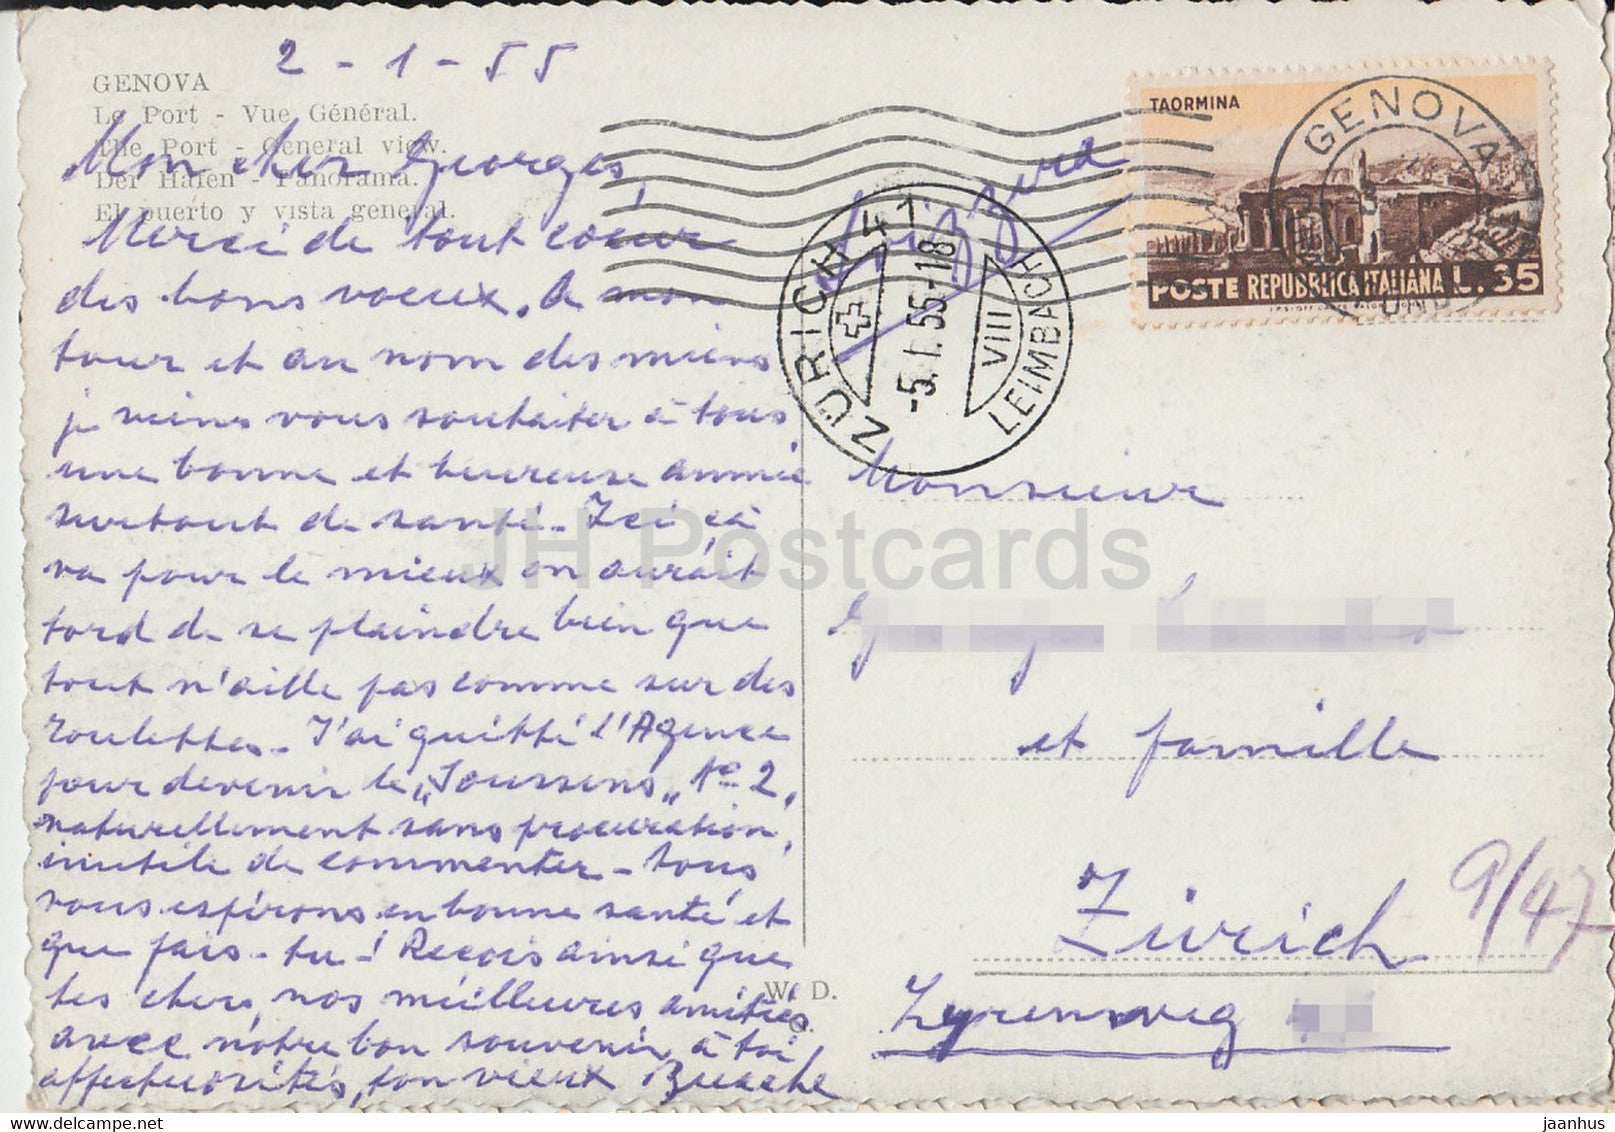 2 - 1 - 55
GENOVA
Le Port - Vue Général.
The Port - General view.
Der Hafen - Panorama.
El puerto y vista general.
Mon cher Georges,
Merci de tout coeur
des bons voeux. A mon
tour et au nom des miens
je viens vous souhaiter à tous
une bonne et heureuse année
surtout de santé - Ici çà
va pour le mieux on aurait
tord de se plaindre bien que
tout n'aille pas comme sur des
roulettes - J'ai quitté l'Agence
pour devenir le „Joussens„ No 2,
naturellement sans procuration,
inutile de commenter - tous,
vous espérons en bonne santé et
que fais-tu -! Reçois ainsi que
tes chers, nos meilleures amitiés
avec notre bon souvenir, à toi
affectuosités, ton vieux
W. D.
Svizzera
TAORMINA
POSTE REPUBBLICA ITALIANA L. 35
GENOVA
ZÜRICH 41
-5.I.55-18
VIII
LEIMBACH
Monsieur
et famille
Zürich
9/47
weg
JH Postcards
jaanhus